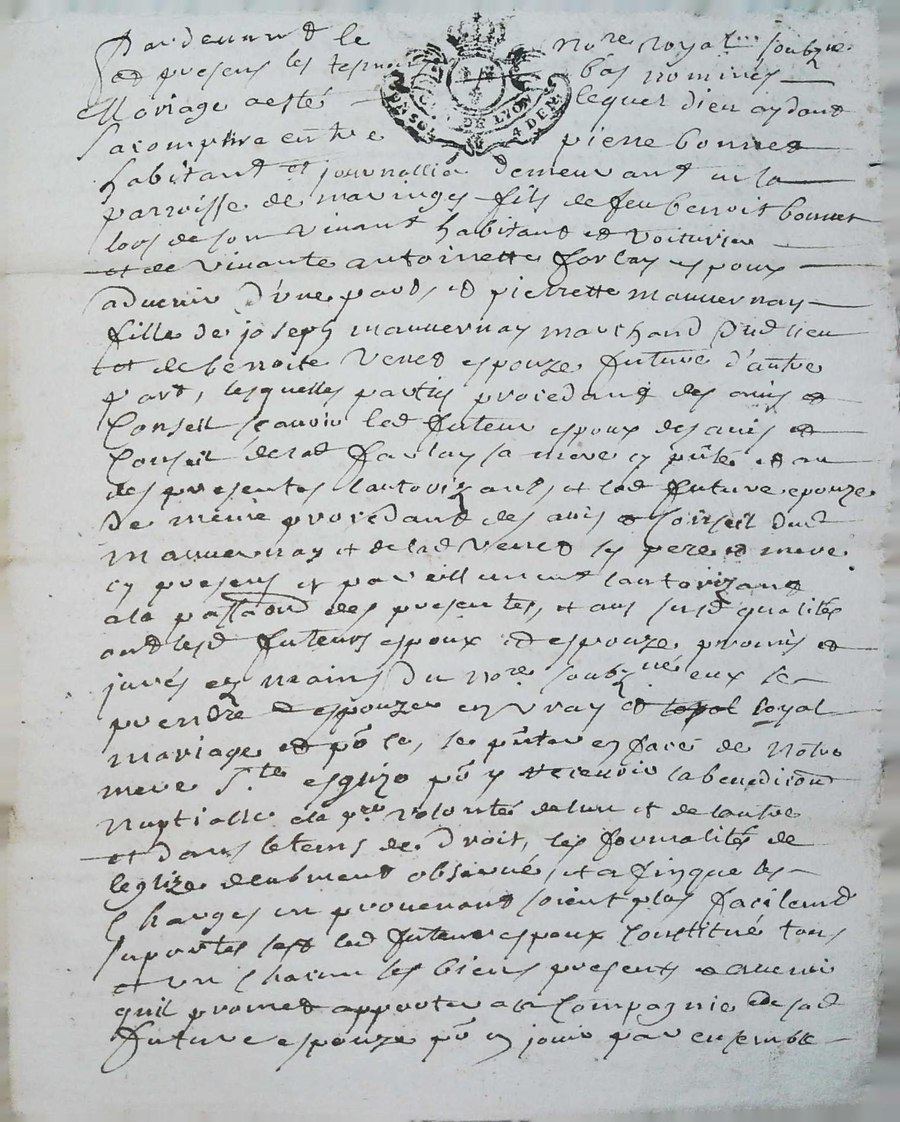 Pardevant le nore royal soubzne
et presens les tesmoins bas nommés
Mariage aesté lequel dieu aydant
sacomplira entre pierre bonnet
habitant et journallier demeurant en la
parroisse de maringes fils de feu benoit bonnet
lors de son vivant habitant et voiturier
et de vivante antoinette forlay espoux
advenir d'une part, et pierrette mauvernay
fille de joseph mauvernay marchand dud lieu
et de benoite Venet espouze future d'autre
part, lesquelles parties procedant des avis et
Conseil scavoir led futeur espoux des avis et
Conseil de lad farlay sa mere cy pnte et au
des presentes lautorizant, et lad future epouze
de même procedant des avis et Conseil dud
mauvernay et de lad Venet sy pere et mere
cy presens et pareillement lautorizant
ala passaon des presentes, et aus susd qualités
ont lesd futeurs espoux et espouze promis et
jurés es mains du nore soubzné eux se
prendre et espouzer en vray et loyal loyal
mariage et pr ce, se pnter en face de notre
mere Ste esglize pr y recevoir la benedicon
nuptialle ala pre volonté de lun et de lautre
et dans le tems de droit, les formalités de
leglize deubment observé, et afinque les
Charges en provenant soient plus facilemt
suportes sest led futeur espoux Constitué tous
et un Chacun les biens presents et avenir
quil promet apporter ala Compagnie de sad
future espouze pr en jouir par ensemble
DE LYON
4 DEN